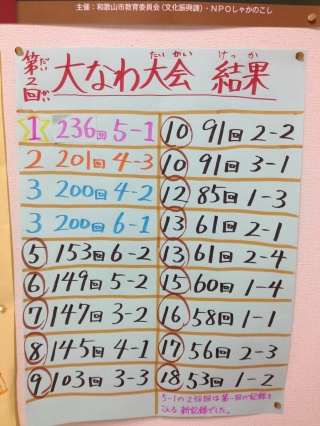 主催:和歌山市教育委員会(文化振興課)・NPOしゃかのこし
第2回 大なわ大会 結果
だい かい たいかい けっか
1 236回 5-1
2 201回 4-3
3 200回 4-2
3 200回 6-1
5 153回 6-2
6 149回 5-2
7 147回 3-2
8 145回 4-1
9 103回 3-3
10 91回 2-2
10 91回 3-1
12 85回 1-3
13 61回 2-1
13 61回 2-4
15 60回 1-4
16 58回 1-1
17 56回 2-3
18 53回 1-2
5-1の236回は第一回の記録を
こえる新記録でした。